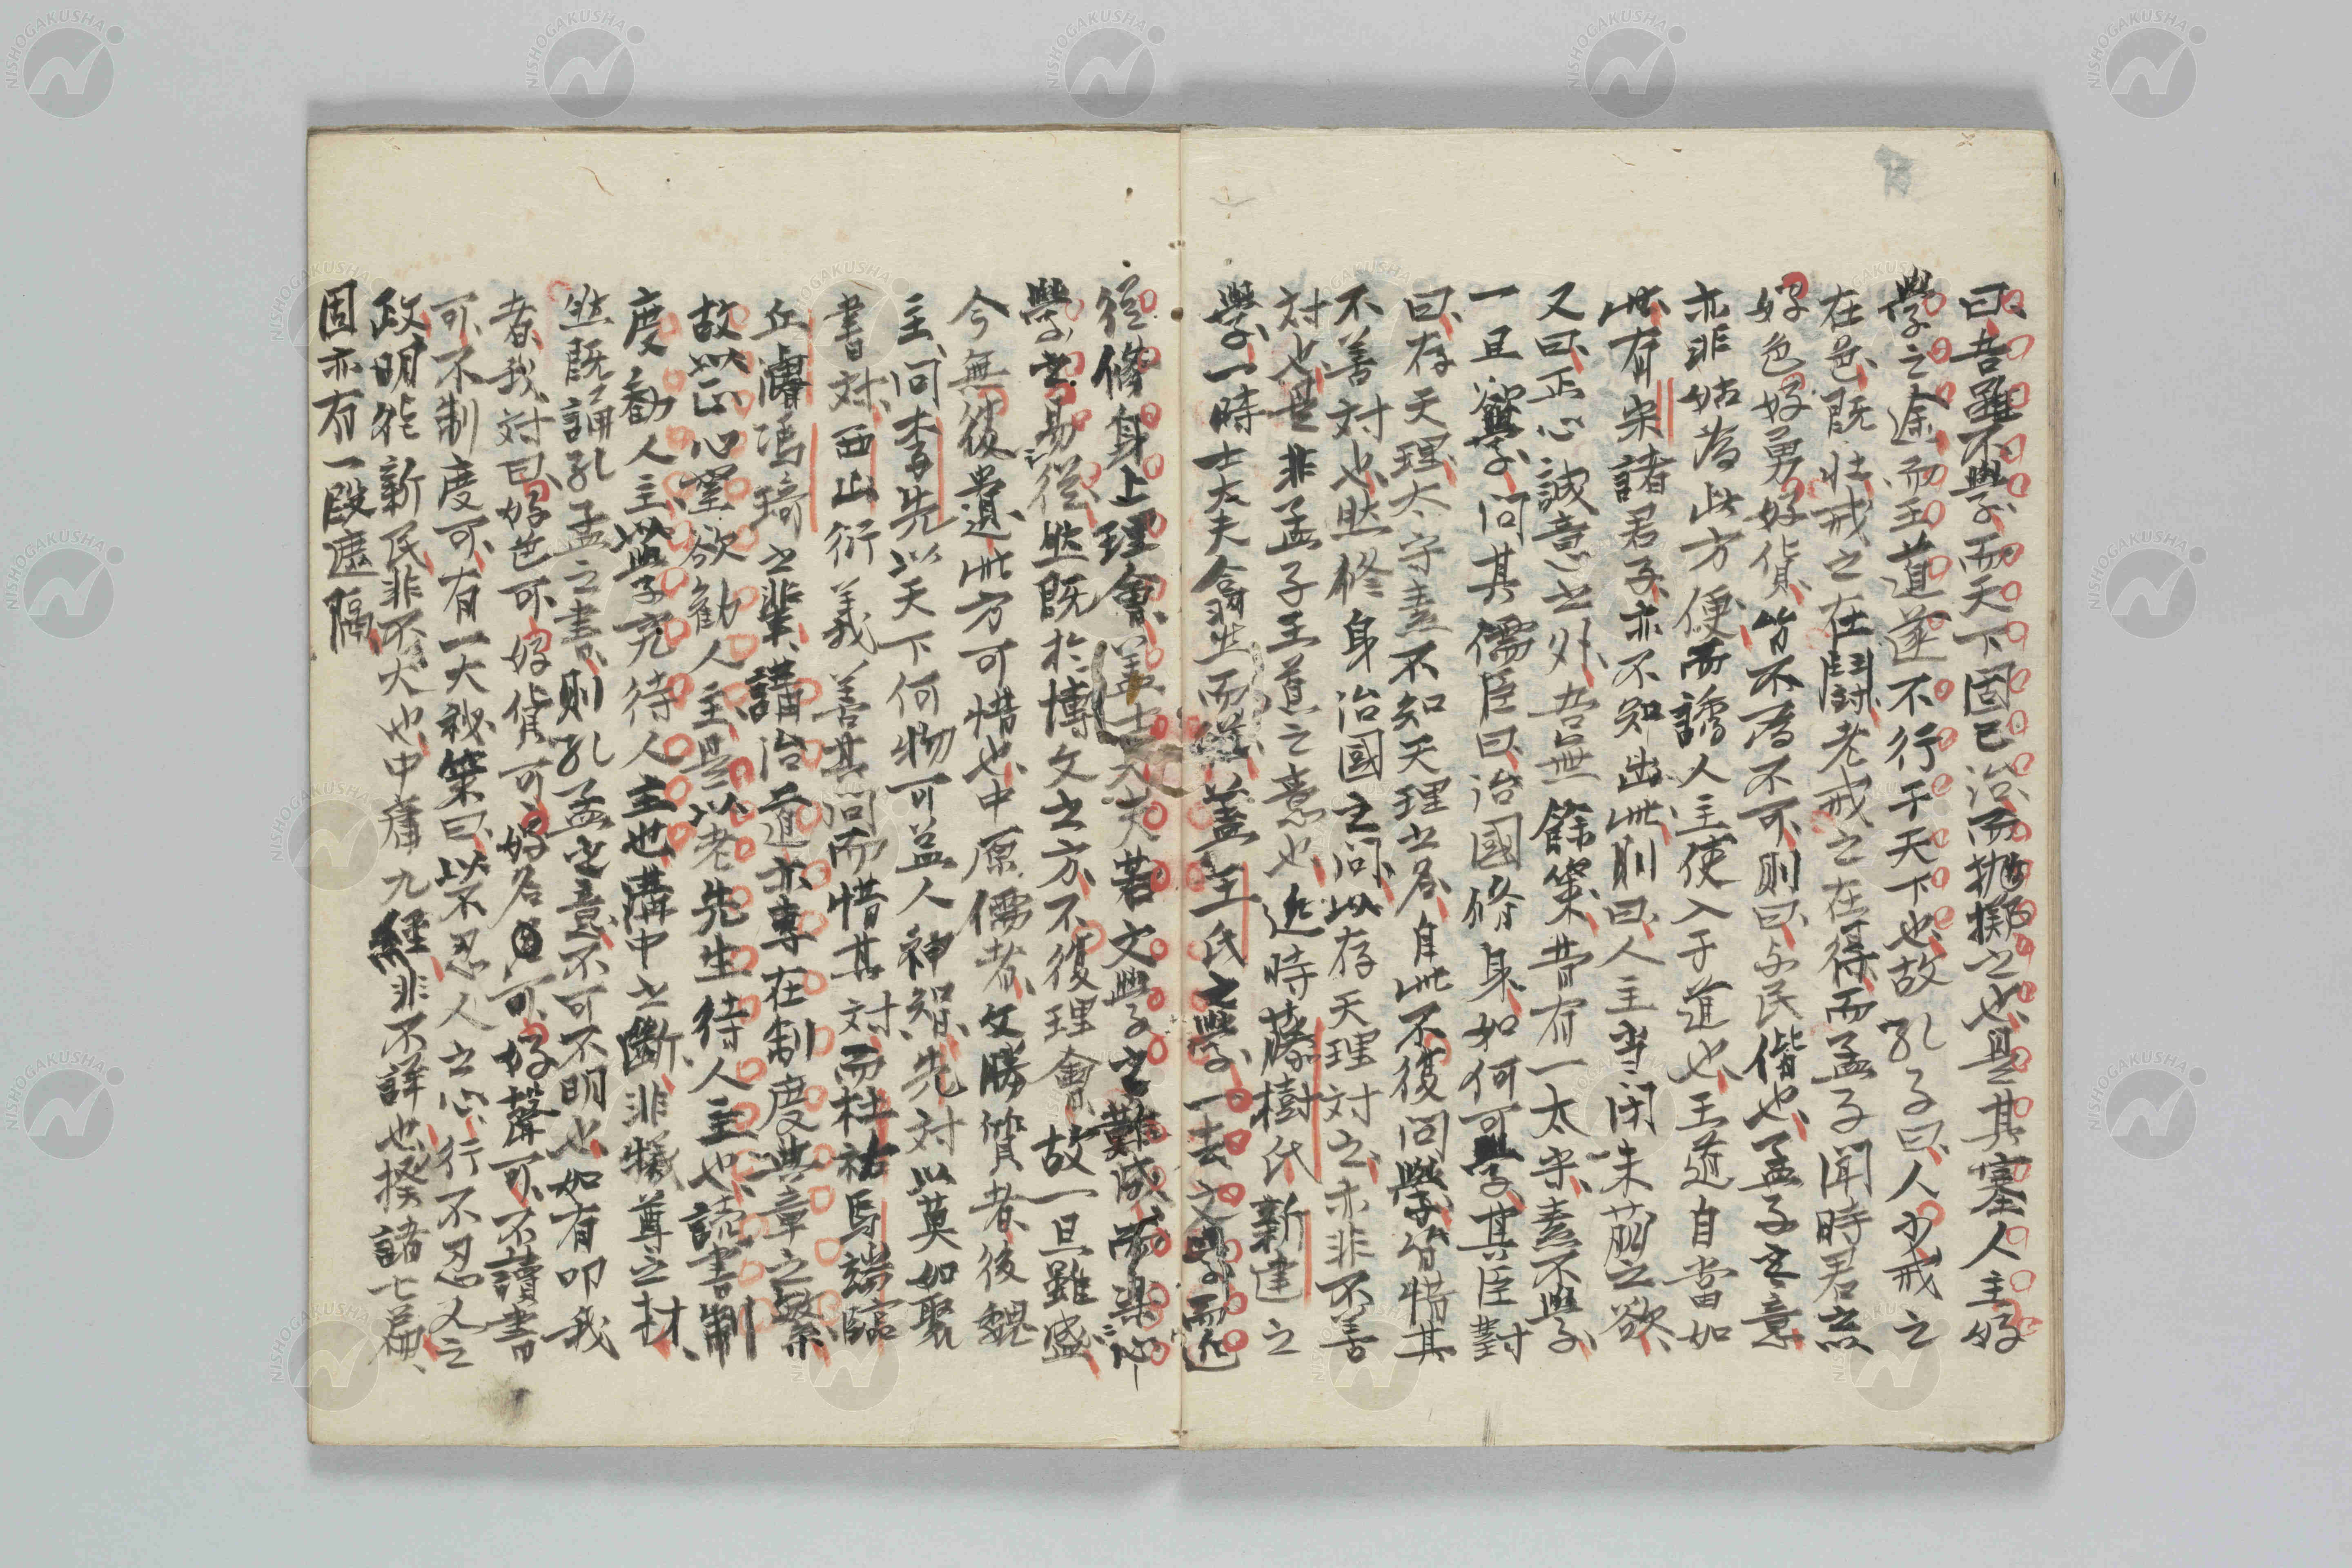 曰、吾雖不學、而天下固已治、而抛擲之也、是其塞人主好
學之途、而王道遂不行于天下也、故孔子曰、人少戒之
在色、既壯戒之在鬪、老戒之在得、而孟子聞時君言
好色好勇好貨、皆不為不可、則曰、与民偕也、孟子之意
亦非姑為此方便、而誘人主使入于道也、王道自當如
此、有宋諸君子亦不知出此、則曰、人主当閉未萠之欲、
又曰、正心誠意之外、吾無餘策、昔有一太宗、素不學、
一旦欲學、問其儒臣曰、治國修身、如何可學、其臣對
曰、存天理、太守素不知天理之名、自此不復問學、皆惜其
不善対也、然修身治國之問、以存天理対之、亦非不善
対也、是非孟子王道之意也、近時藤樹氏新建之
學、一時士大夫翕然而従、蓋王氏之學、一去文學而近
從修身上理會、蓋士大夫若文學之難成、而楽心
學之易從、然既於博文之方、不復理會、故一旦雖盛
今無後遺、此方可惜也、中原儒者、文勝質者、後魏
主、問李先以天下何物可益人神智、先対以莫如聚
書対、西山衍義、善其問而惜其対、而杜祐馬端臨
丘濬馮琦之輩、講治道、亦專在制度典章之繁、
故以正心窒欲勧人主、是以老先生待人主也、読書制
度勸人主、以學究待人主也、溝中之斷、非犧尊之材、
然既誦孔孟之書、則孔孟之意、不可不明也、如有叩我
者、我対曰、好色可、好貨可、好名可、好聲可、不讀書
可、不制度可、有一大秘策、曰、以不忍人之心、行不忍人之
政、明能新民、非不大也、中庸九經、非不詳也、揆諸七篇、
固亦有一段遮隔